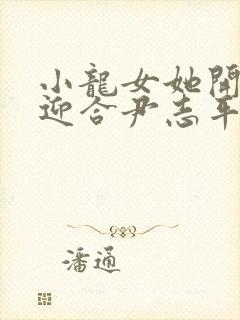 小龍女她開
迎合尹志平
潘通